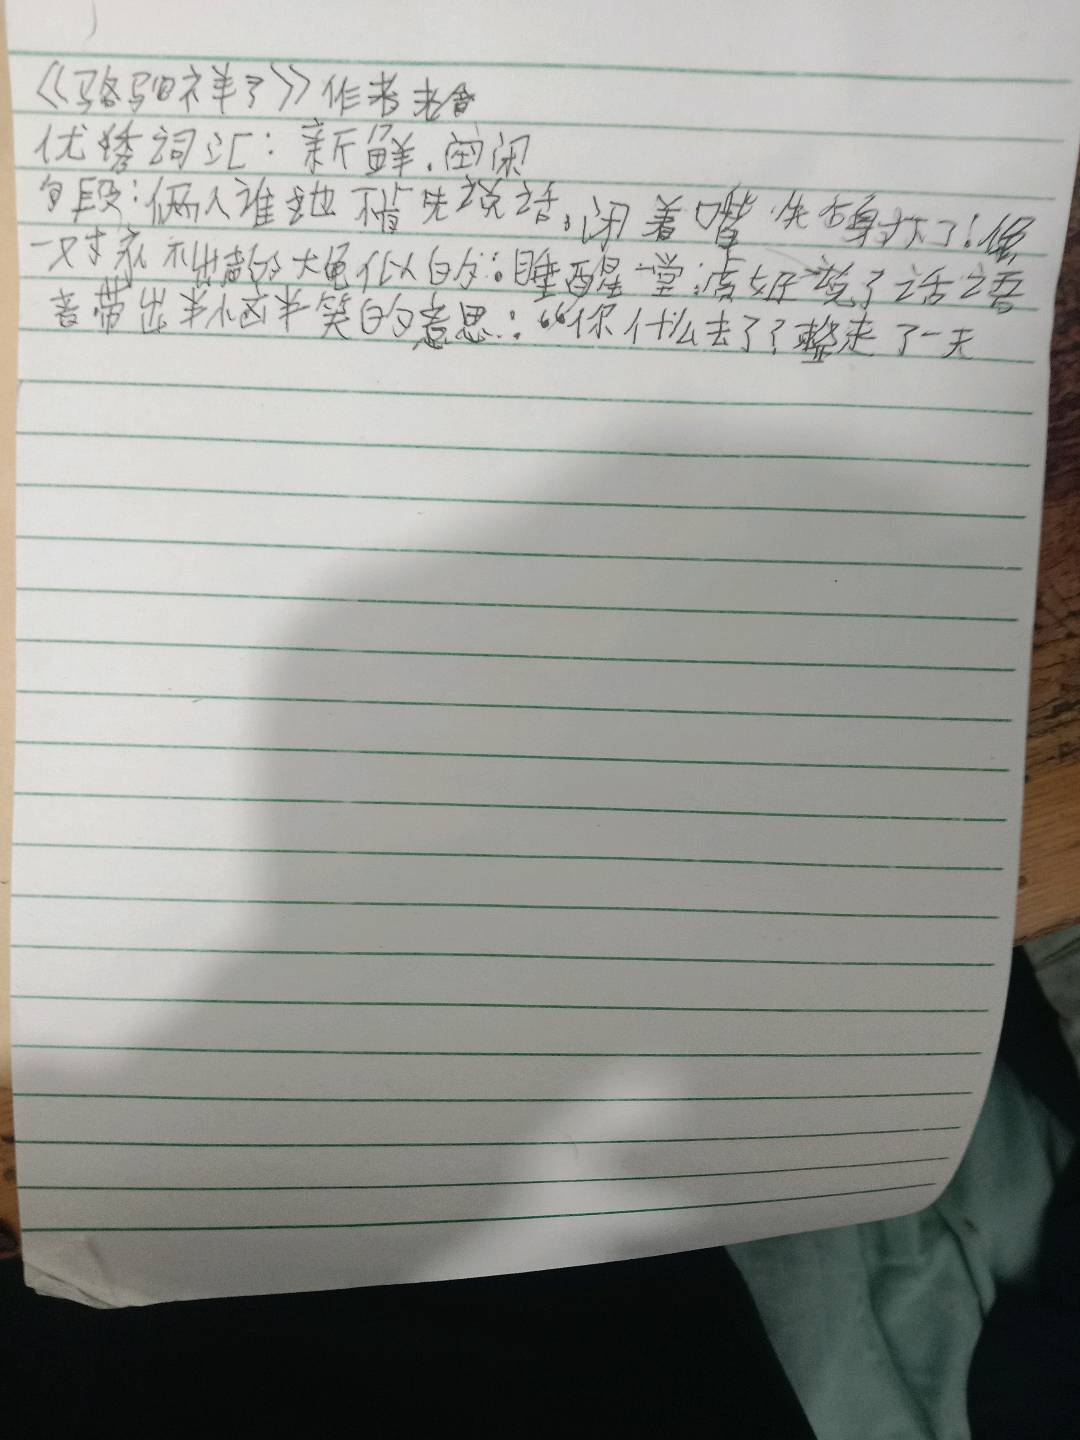 《骆驼祥子》作者老舍
优秀词汇：新鲜.空闲
句段：俩人谁也不肯先说话，闭着嘴，先右射下了！像
一对永不出声的大龟似的。睡醒一堂，虎妞说了话，语
音带出半恼半笑的意思：“你什么去了？整走了一天